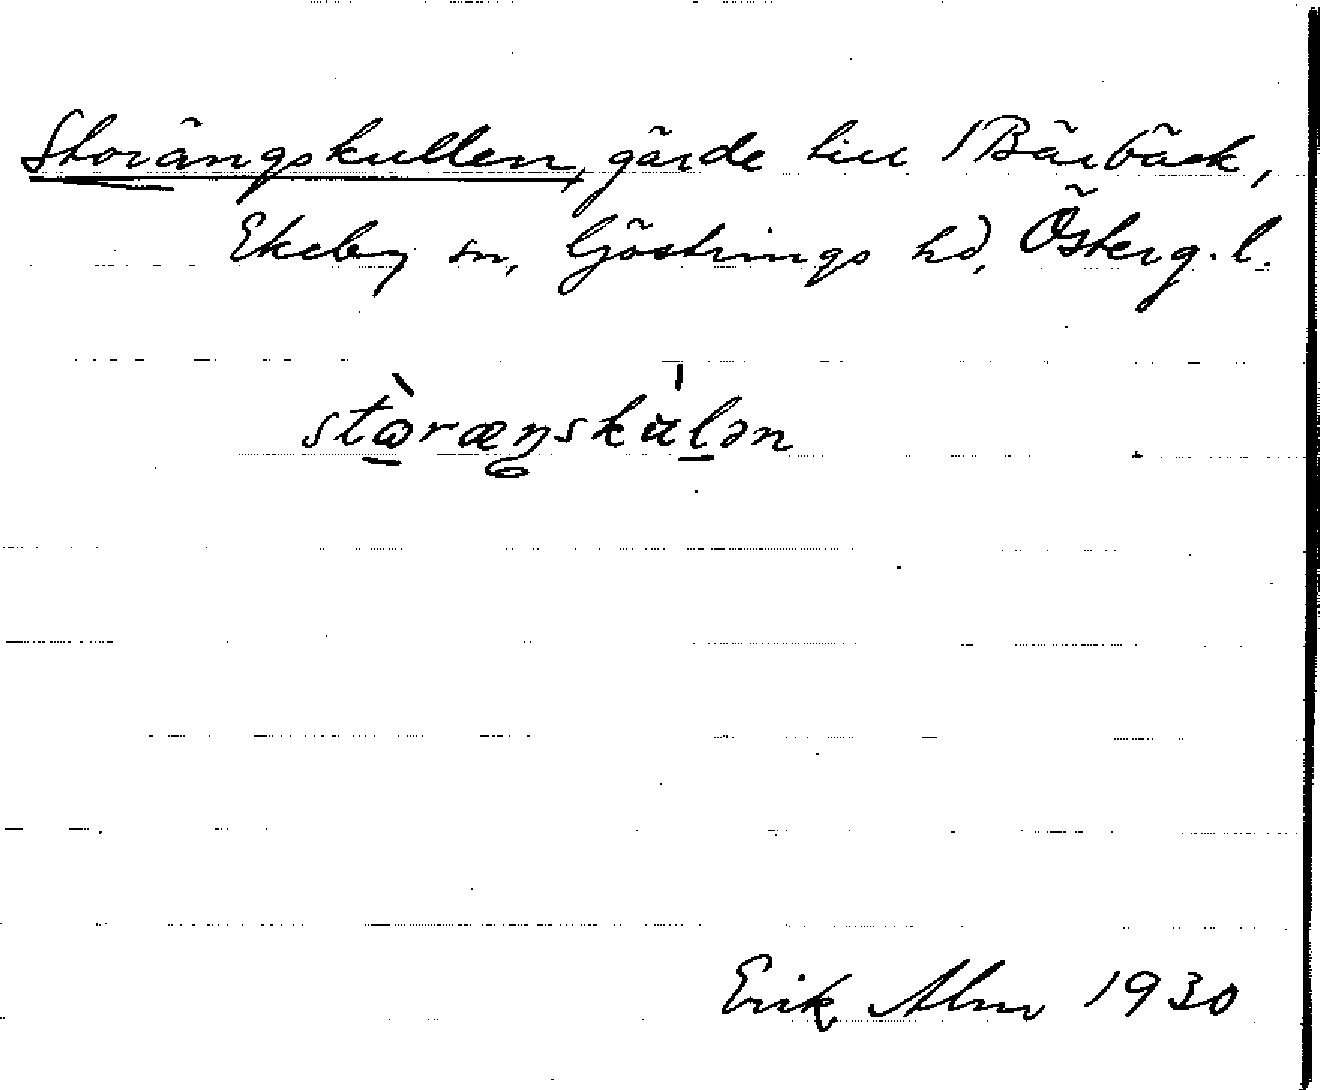 Storängskullen, gärde till Bärbäck,
Ekeby sn, Göstrings hd, Österg. l.
stɷ̀ræŋskùlən
Erik Alm 1930